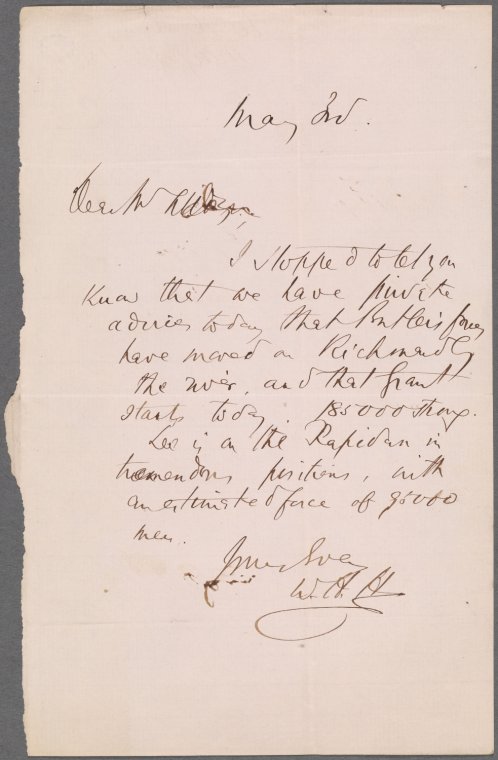 May 3rd.
Dear Mr
I stopped to let you
know that we have private
advices today that Butler's forces
have moved on Richmond by
the river, and that Grant
starts today. 185000 strong.
Lee is on the Rapidan in
tremendous positions, with
an estimated force of 95000
men.
Yours Ever
W. A. H